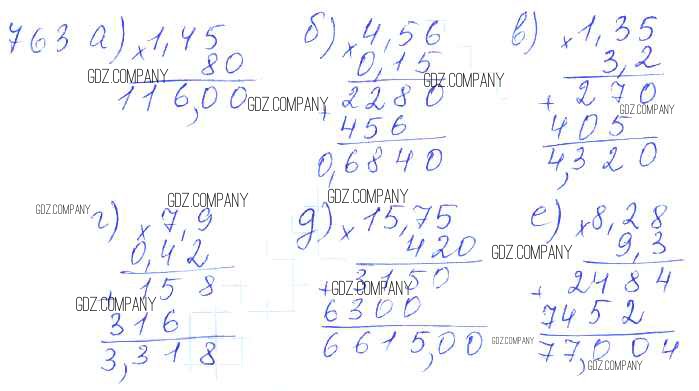 763 а) × 1,45
80
116,00
б) × 4,56
0,15
+ 2280
456
0,6840
в) × 1,35
3,2
+ 270
405
4,320
г) × 7,9
0,42
+ 158
316
3,318
д) × 15,75
420
+ 3150
6300
6615,00
е) × 8,28
9,3
+ 2484
7452
77,004
GDZ.COMPANY
GDZ.COMPANY
GDZ.COMPANY
GDZ.COMPANY
GDZ.COMPANY
GDZ.COMPANY
GDZ.COMPANY
GDZ.COMPANY
GDZ.COMPANY
GDZ.COMPANY
GDZ.COMPANY
GDZ.COMPANY